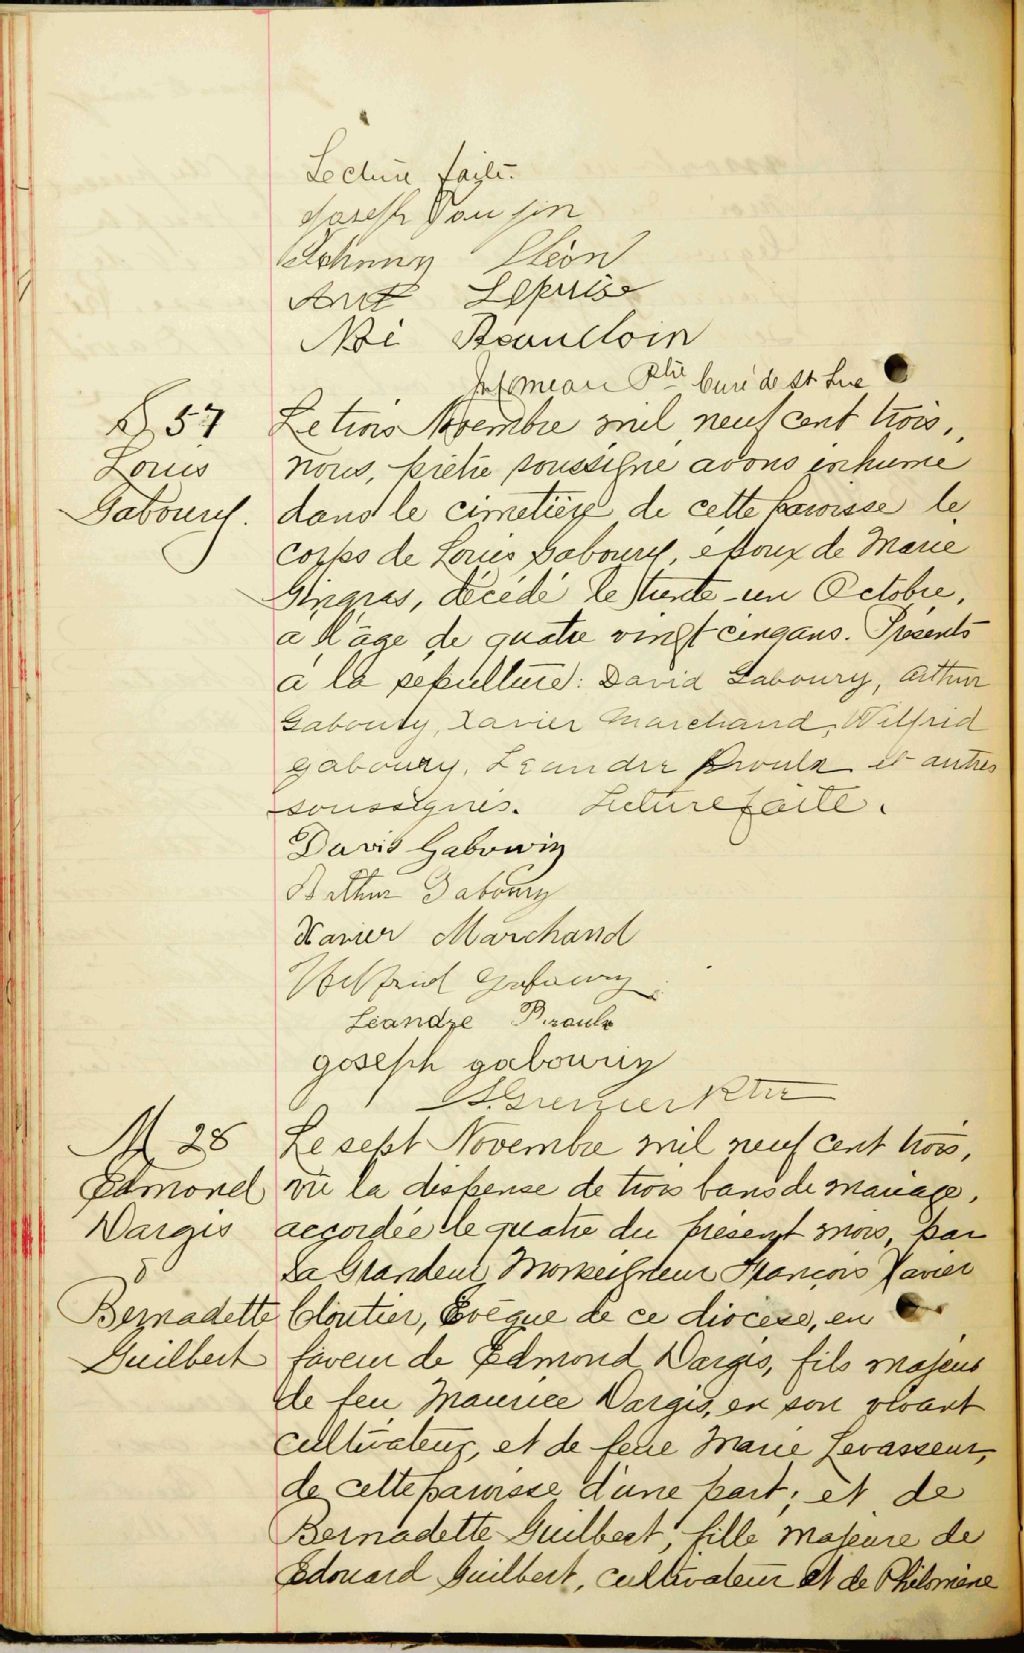 Lecture faite.
Joseph
Johnny Cléon
Lepuise
Noé Beaudoin
Ptre Curé de St Luc
S 57
Louis
Gaboury.
Le trois Novembre mil neuf cent trois,
nous, prêtre soussigné avons inhumé
dans le cimetière de cette paroisse le
corps de Louis Gaboury, époux de Marie
Gingras, décédé le trente-un Octobre,
à l'âge de quatre vingt cinq ans. Présents
à la sépulture: David Gaboury, Arthur
Gaboury, Xavier Marchand, Wilfrid
Gaboury, Leandre Proulx et autres
soussignés. Lecture faite.
David Gabouriy
Arthur Gaboury
Xavier Marchand
Wilfrid Gaboury
Léandre Proulx
Joseph gabouriy
Grenier Ptre
M 28
Edmond
Dargis
&
Bernadette
Guilbert
Le sept Novembre mil neuf cent trois,
vu la dispense de trois bans de mariage,
accordée le quatre du présent mois, par
Sa Grandeur Monseigneur François Xavier
Cloutier, Evêque de ce diocèse, en
faveur de Edmond Dargis, fils majeur
de feu Maurice Dargis, en son vivant
cultivateur, et de feue Marie Levasseur,
de cette paroisse d'une part; et de
Bernadette Guilbert, fille majeure de
Edouard Guilbert, cultivateur et de Philomène